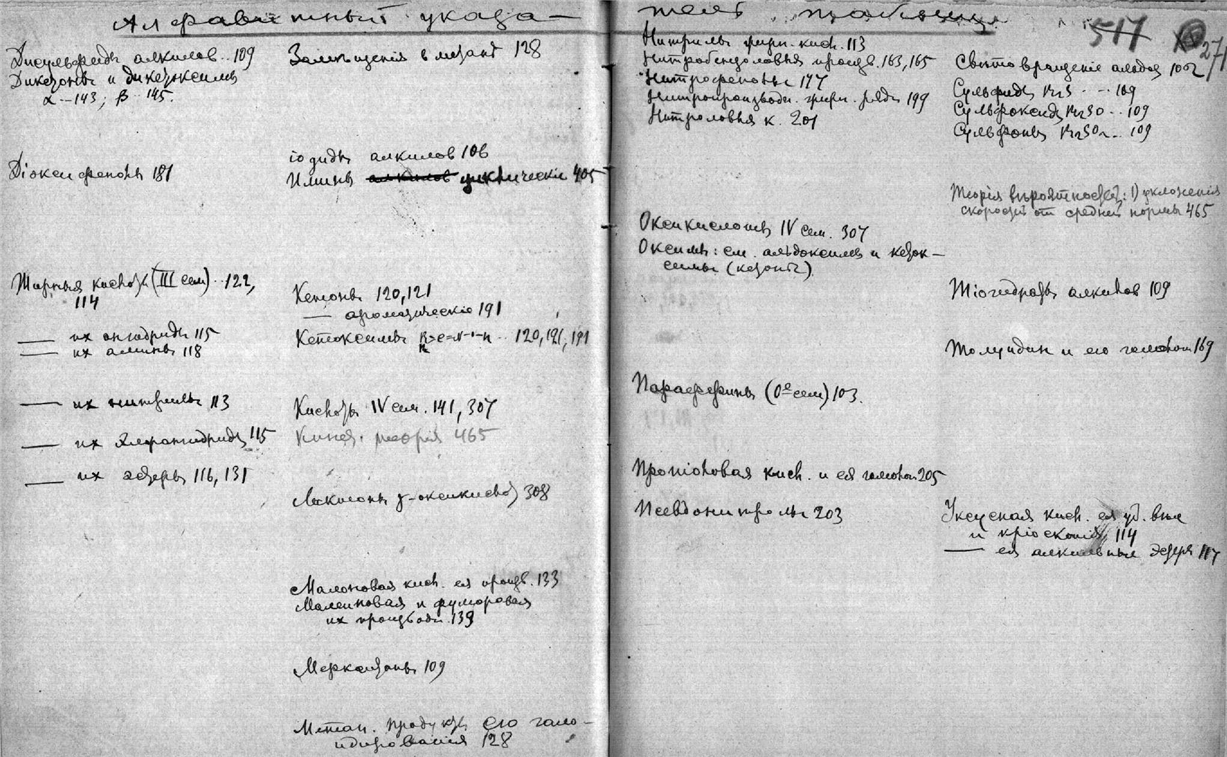 Алфавитный указа-
Дисульфиды алкилов..109
Дикетоны и дикетоксимы
α--143, β--145.
Діоксифенолы 181
Жирныя кислоты (III сем)..122,
114
— их ангидриды 115
— их амины 118
— их нитрилы 113
— их 115
— их эфиры 116, 131
Замещения в метане 128
іодиды алкилов 106
Имины циклическіе 405
Кетоны 120, 121
— ароматическіе 191
Кетоксимы 120, 121, 191
Кислоты IV сем. 141, 307
Кинет. теорія 465
Лактоны γ-оксикислот 308
Малоновая кисл. ея производ. 133
Малеиновая и фумаровая
их производн. 139
Меркаптаны 109
Метан. Продукты его гало-
идирования 128
тель таблиц
517
271
Нитрилы жирн. кисл. 113
Нитробензоловыя произв. 163, 165
Нитрофенолы 177
Нитропроизводн. жирн. ряда 199
Нитроловыя к. 201
Оксикислоты IV сем. 307
Оксимы: см. альдоксимы и кеток-
симы (кетоны)
Параффины (0е сем) 103.
Пропіоловая кисл. и ея гомологи 205
Псевдонитролы 203
Сульфиды R2S -- 109
Сульфоксиды R2SO -- 109
Сульфоны R2SO2 -- 109
Теорія вероятностей: 1) уклоненія
скоростей от средней нормы 465
Тіогидраты алкилов 109
Толуидин и его гомологи 169
Уксусная кисл. ея уд. вес
и кріоскопія 114
— ея алкильные эфиры 117